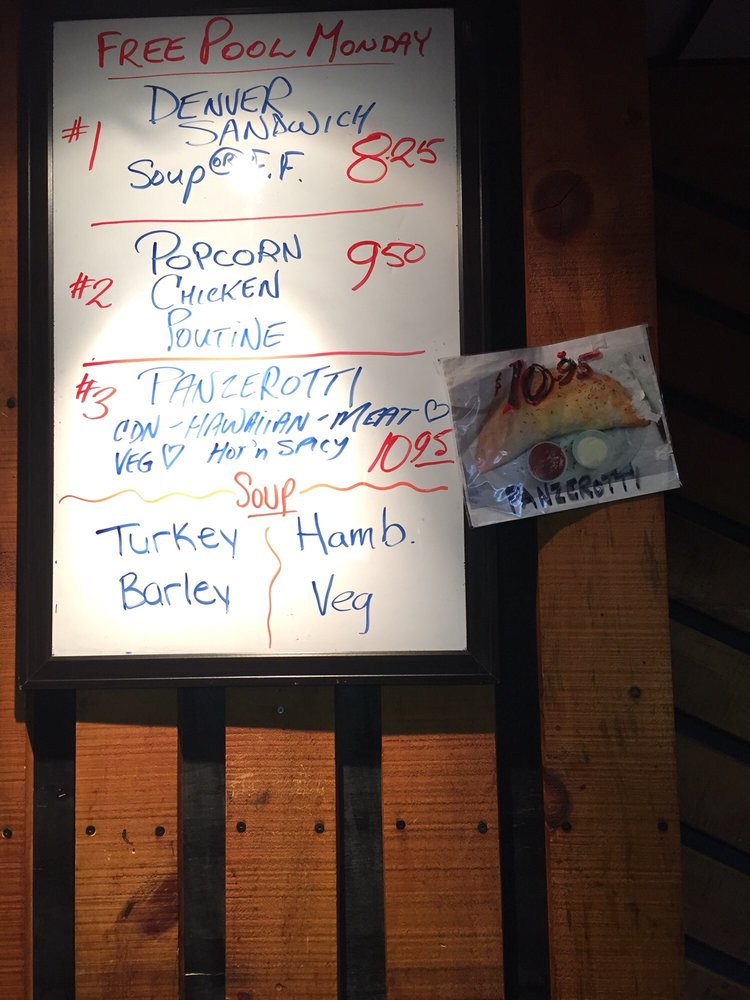 FREE POOL MONDAY
#1 DENVER
SANDWICH
Soup OR F.F. 8.25
#2 POPCORN 9.50
CHICKEN
POUTINE
#3 PANZEROTTI
CDN - HAWAIIAN - MEAT ♡
VEG ♡ HOT'n SPICY 10.95
SOUP
Turkey Hamb.
Barley Veg
$10.95
PANZEROTTI